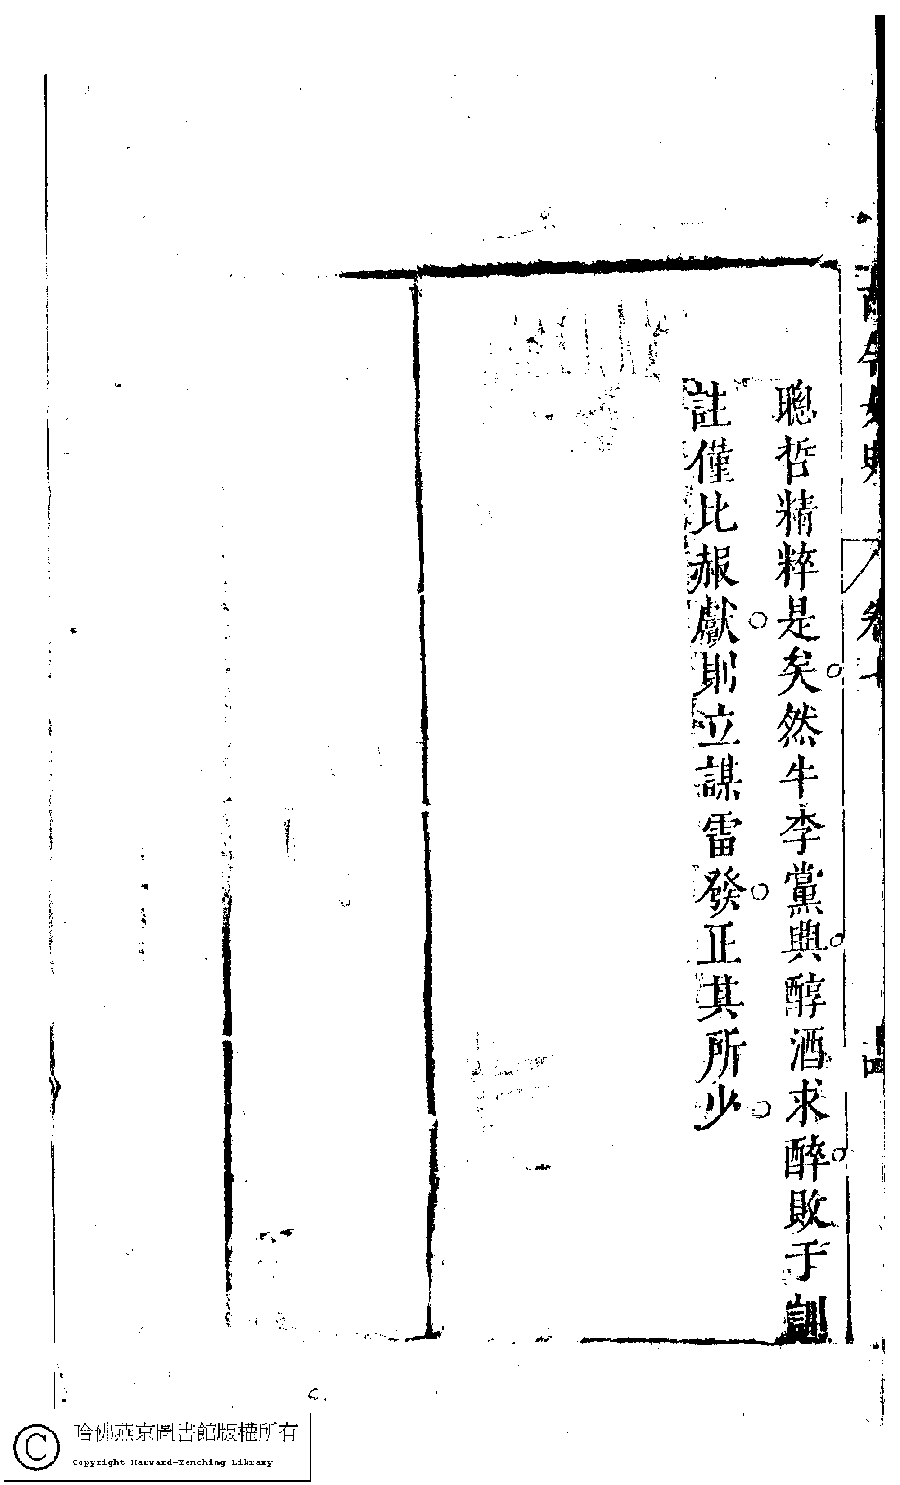 聰哲精粹是矣然牛李黨與醇酒求醉敗于訓
註僅比赧獻則立謀雷發正其所少
卷十
哈佛燕京圖書館版權所有
Copyright Harvard-Yenching Library